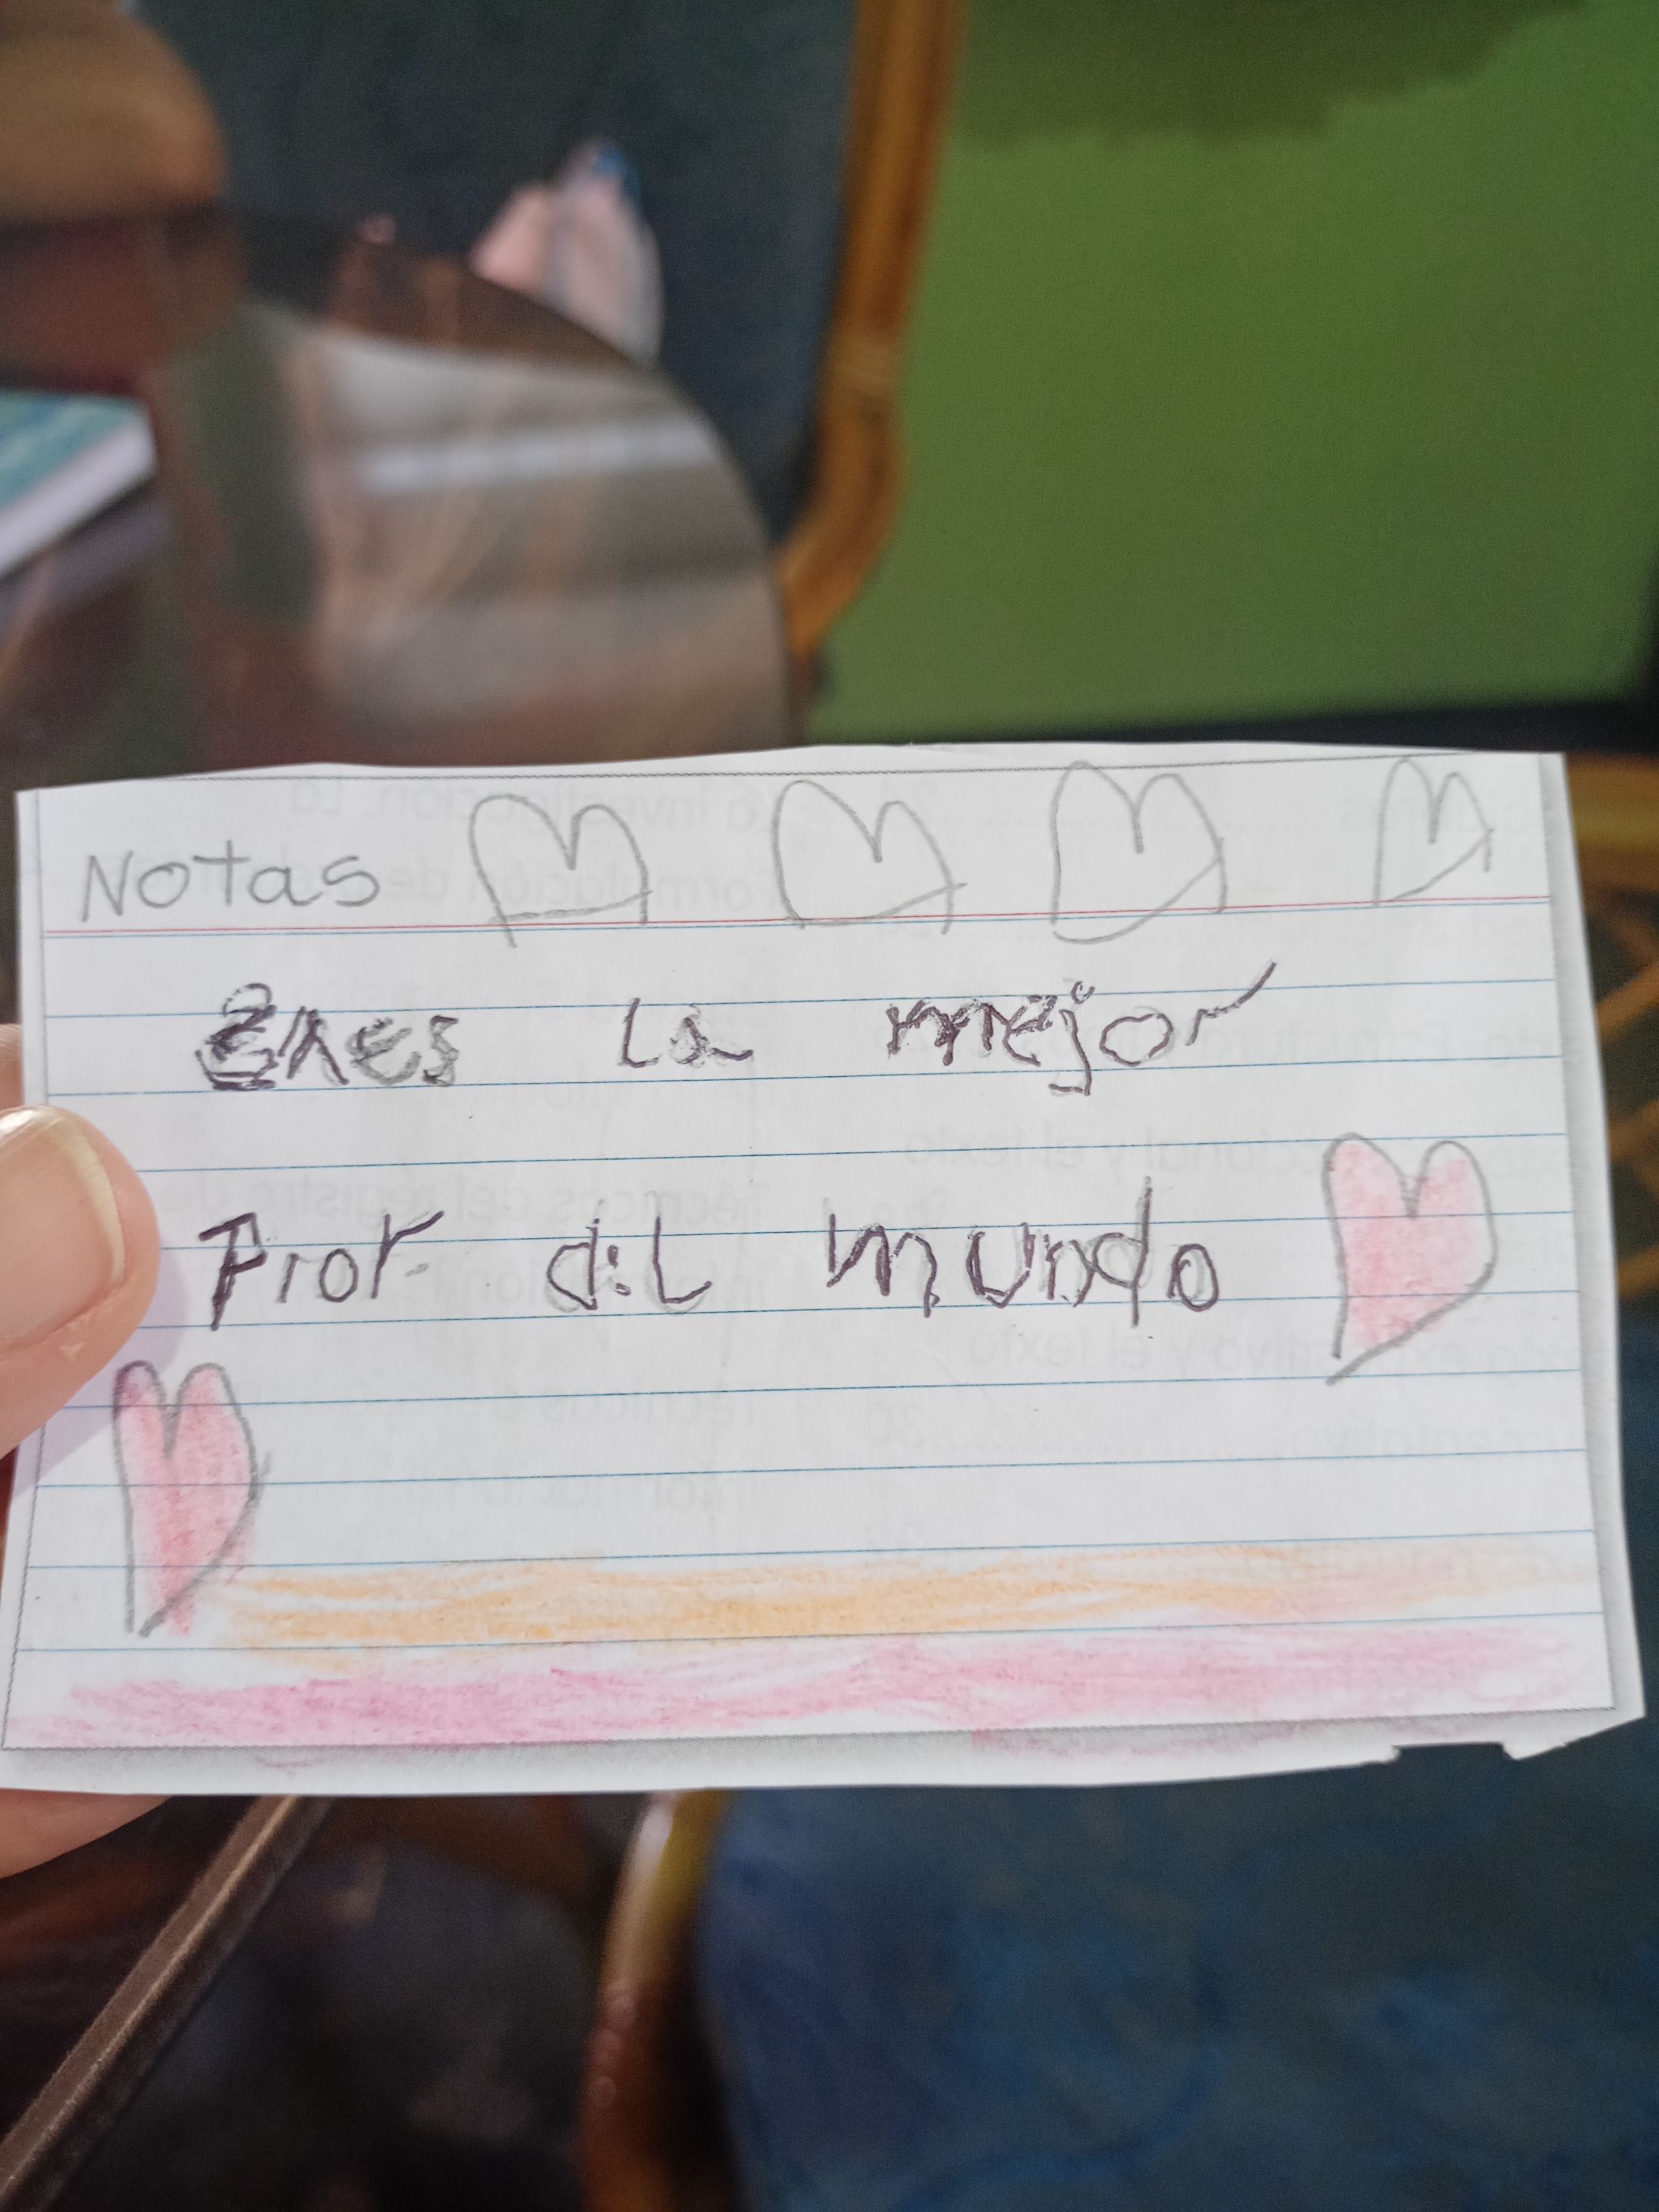 Notas
Eres la mejor
Prof del mundo